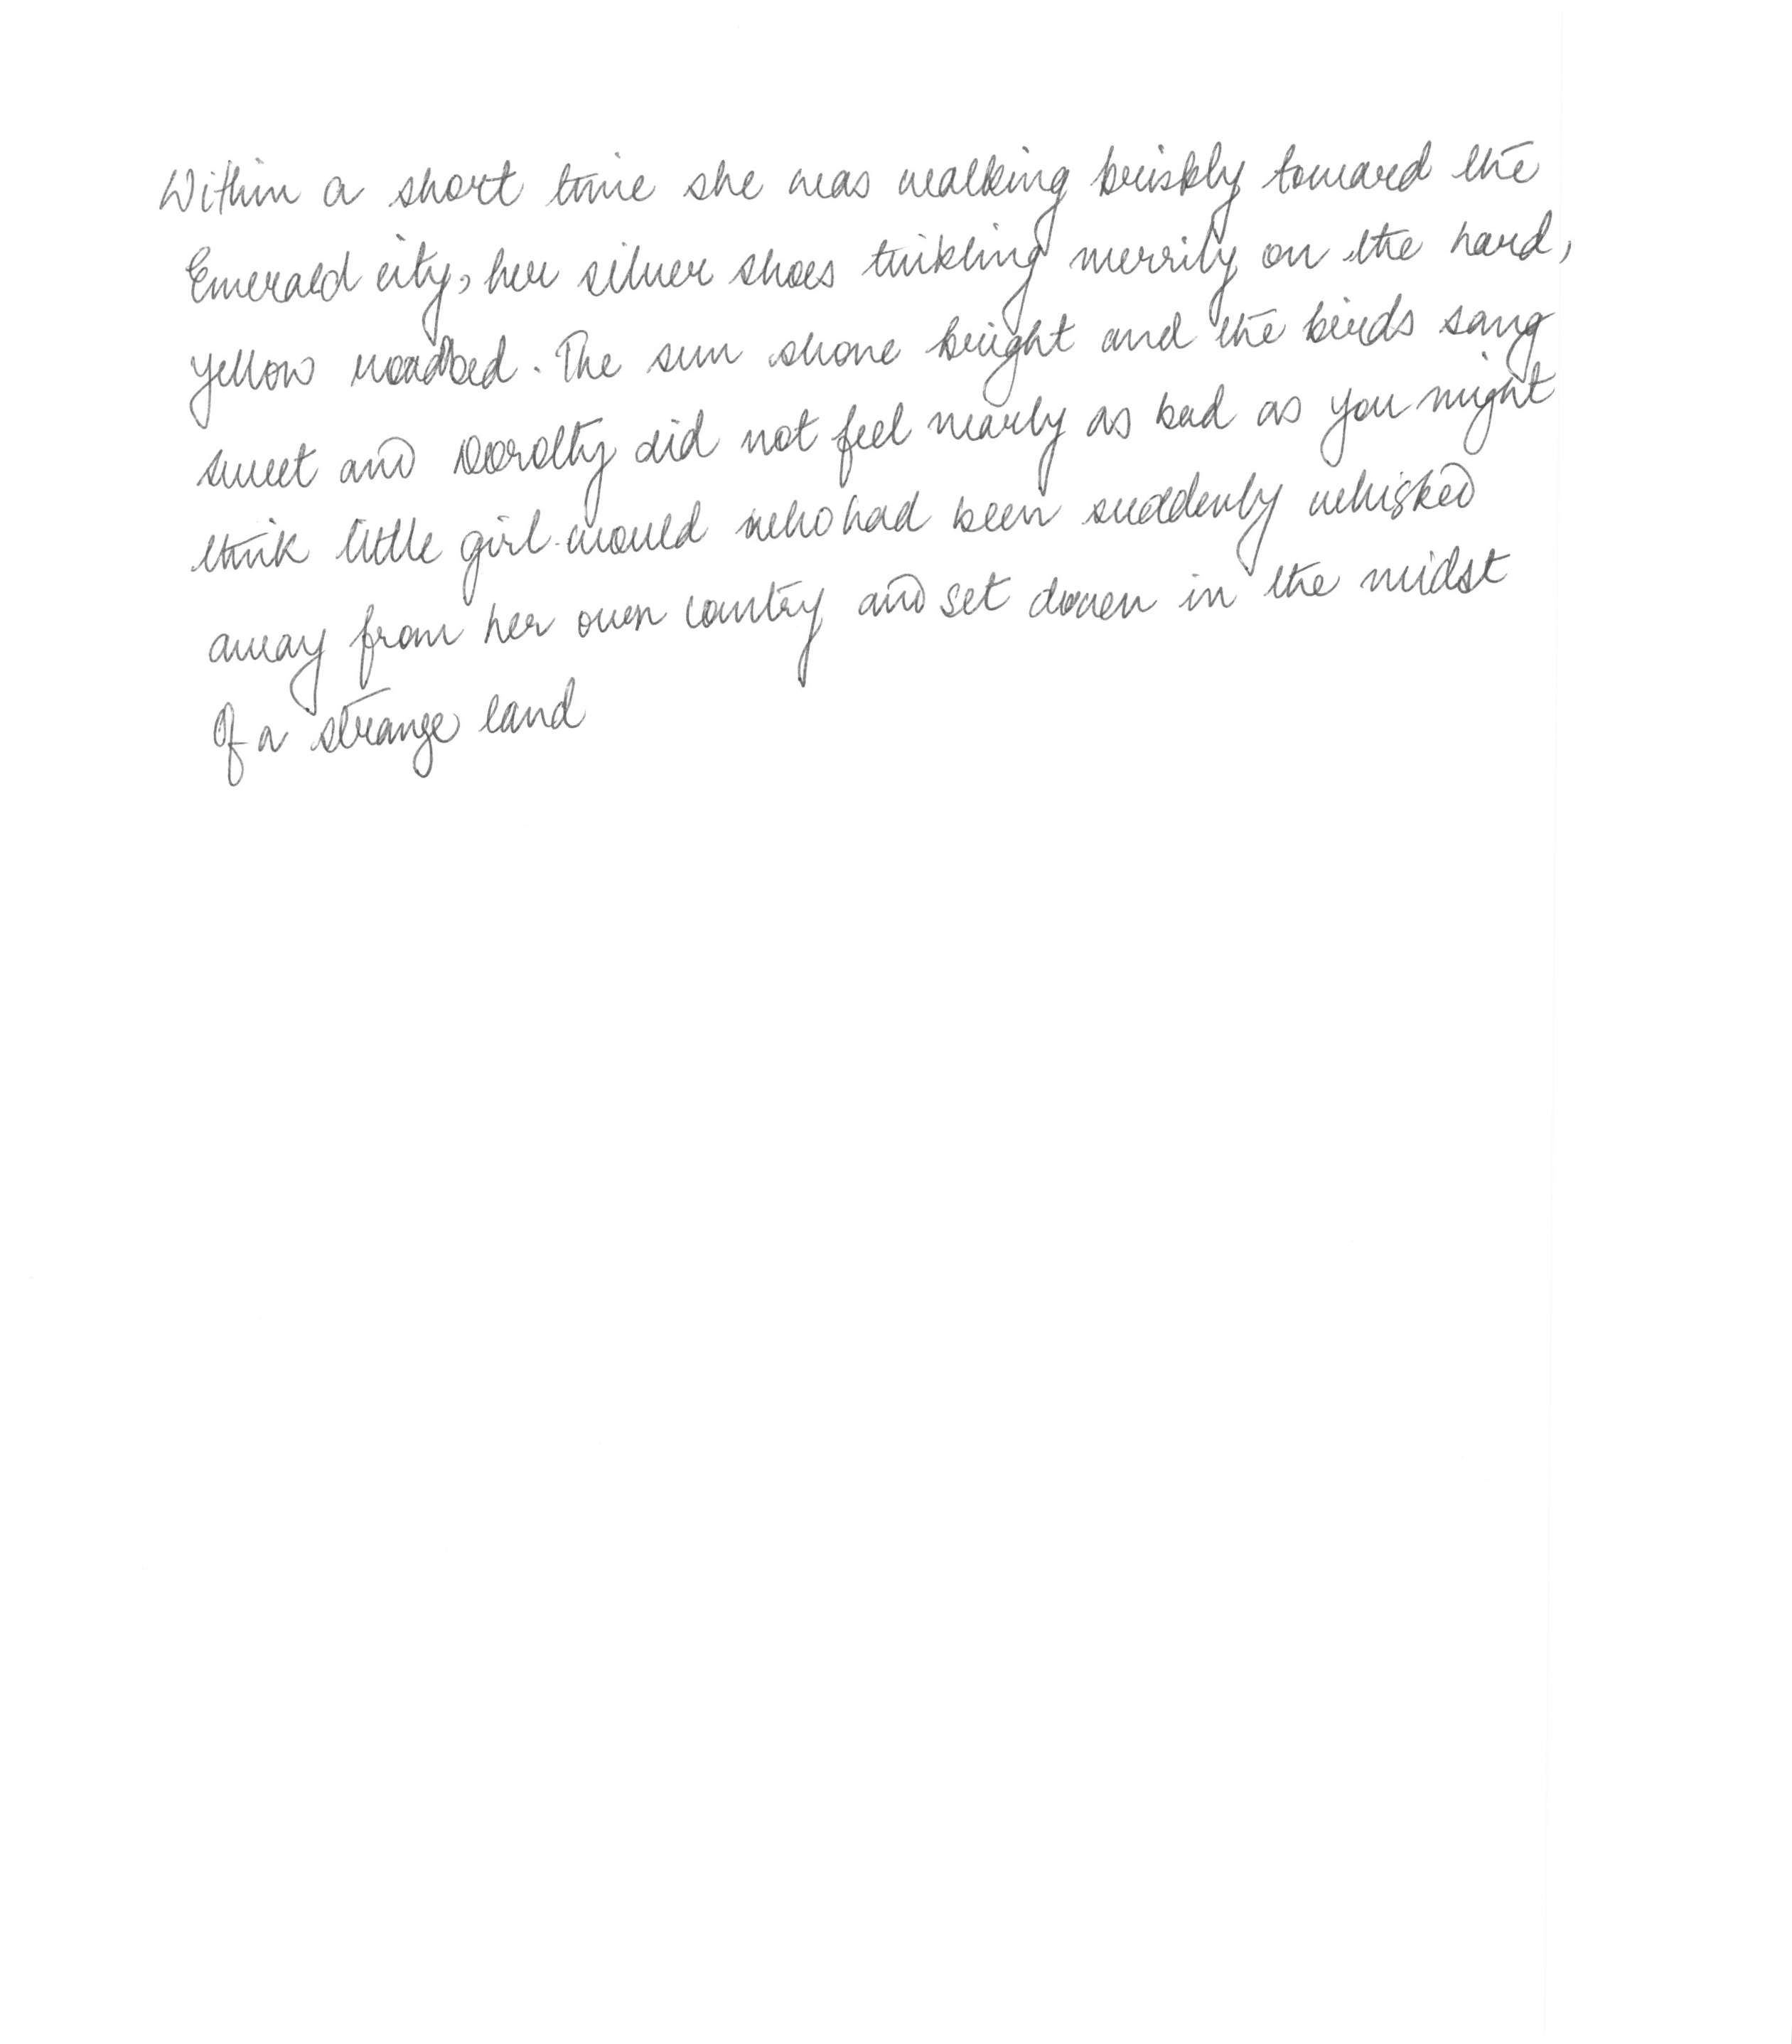 Within a short time she was walking briskly toward the
Emerald city, her silver shoes tinkling merrily on the hard,
yellow roadbed. The sun shone bright and the birds sang
sweet and Dorothy did not feel nearly as bad as you might
think little girl would who had been suddenly whisked
away from her own country and set down in the midst
of a strange land